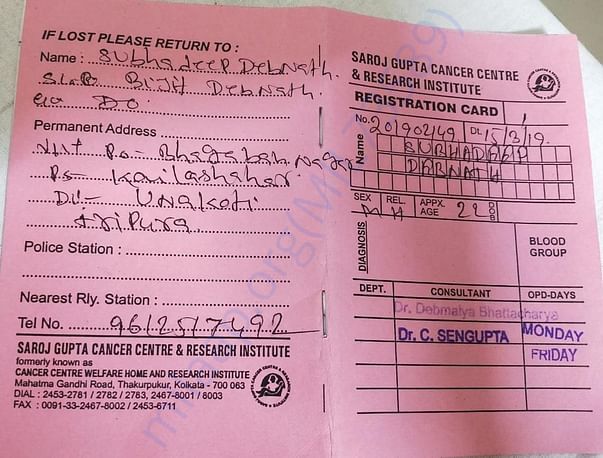 IF LOST PLEASE RETURN TO :
Name : Subhadeep Debnath.
Bijit Debnath.
Permanent Address
Kailashahar
Unakoti
Tripura
Police Station :
Nearest Rly. Station :
Tel No.
SAROJ GUPTA CANCER CENTRE & RESEARCH INSTITUTE
formerly known as
CANCER CENTRE WELFARE HOME AND RESEARCH INSTITUTE
Mahatma Gandhi Road, Thakurpukur, Kolkata - 700 063
DIAL : 2453-2781 / 2782 / 2783, 2467-8001 / 8003
FAX : 0091-33-2467-8002 / 2453-6711
SAROJ GUPTA CANCER CENTRE
& RESEARCH INSTITUTE
REGISTRATION CARD
No. Dt. 15/3/19.
Name SUBHADEEP
DABNATH
SEX M REL. H APPX. AGE 22
DIAGNOSIS
BLOOD
GROUP
DEPT. CONSULTANT OPD-DAYS
Dr. Debmalya Bhattacharya
Dr. C. SENGUPTA MONDAY
FRIDAY